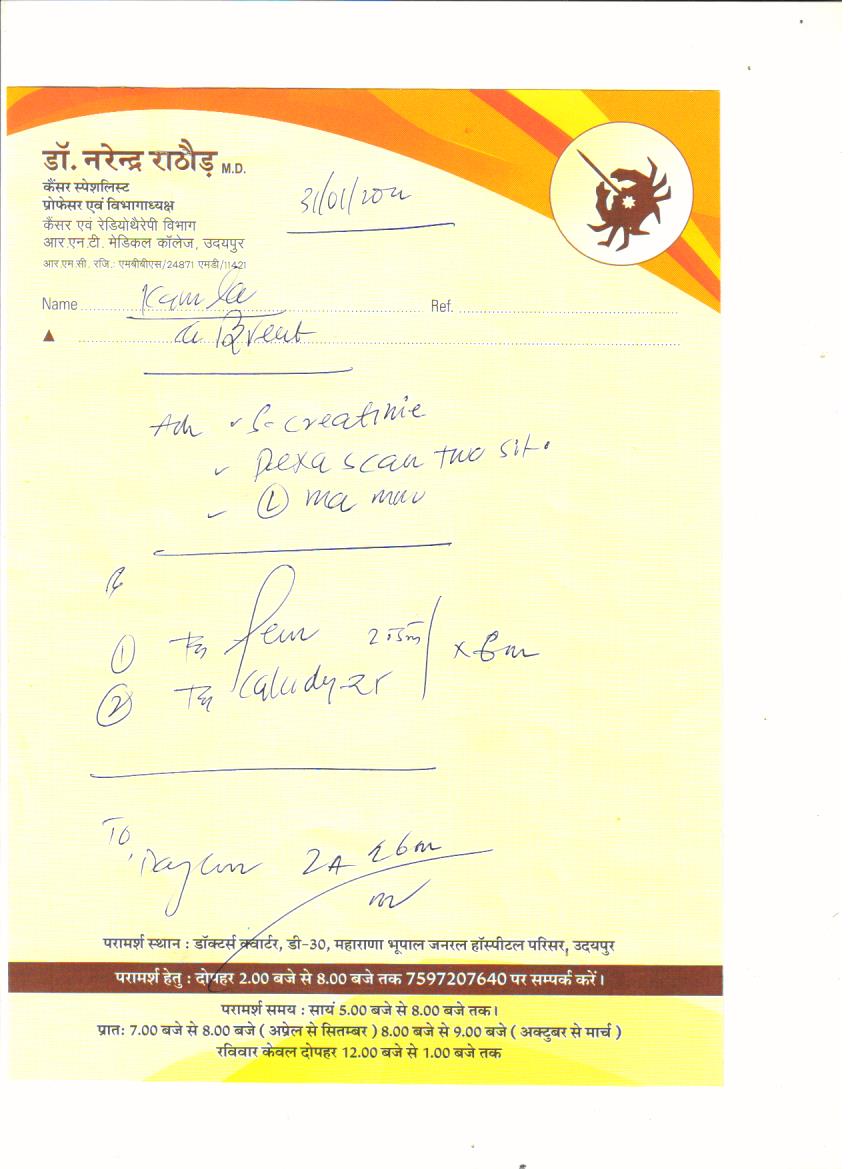 डॉ. नरेन्द्र राठौड़ M.D.
कैंसर स्पेशलिस्ट
प्रोफेसर एवं विभागाध्यक्ष
कैंसर एवं रेडियोथैरेपी विभाग
आर.एन.टी. मेडिकल कॉलेज, उदयपुर
आर.एम.सी. रजि.: एमबीबीएस/24871 एमडी/11421
31/01/2022
Name Kamla Ref.
Ca Breast
Adv S-creatinie
Dexa scan two sit.
(L) mammo
Rx
① Tab 2.5m
② Tab x 6m
TO
परामर्श स्थान : डॉक्टर्स क्वार्टर, डी-30, महाराणा भूपाल जनरल हॉस्पीटल परिसर, उदयपुर
परामर्श हेतु : दोपहर 2.00 बजे से 8.00 बजे तक 7597207640 पर सम्पर्क करें।
परामर्श समय : सायं 5.00 बजे से 8.00 बजे तक।
प्रातः 7.00 बजे से 8.00 बजे ( अप्रेल से सितम्बर ) 8.00 बजे से 9.00 बजे ( अक्टुबर से मार्च )
रविवार केवल दोपहर 12.00 बजे से 1.00 बजे तक